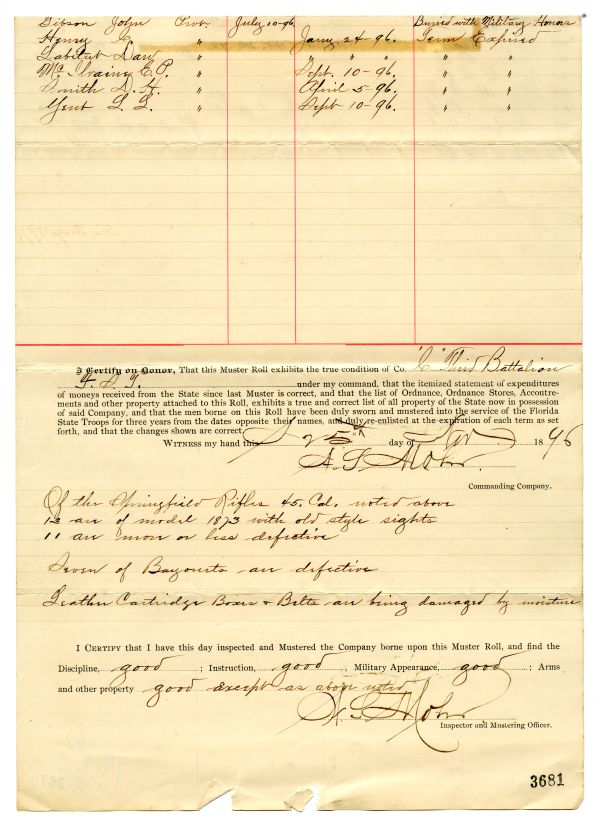 Gibson John Prob. July 10-96 Buried with Military Honors
Henry C " Jany. 24-96. Term Expired
" " " " " "
Mc E. P. " Sept. 10-96. " "
Smith D. H. " April 5-96. " "
Yent L. L. " Sept 10-96. " "
I Certify on Honor, That this Muster Roll exhibits the true condition of Co. "C" Third Battalion
F. S. T. under my command, that the itemized statement of expenditures
of moneys received from the State since last Muster is correct, and that the list of Ordnance, Ordnance Stores, Accoutre-
ments and other property attached to this Roll, exhibits a true and correct list of all property of the State now in possession
of said Company, and that the men borne on this Roll have been duly sworn and mustered into the service of the Florida
State Troops for three years from the dates opposite their names, and duly re-enlisted at the expiration of each term as set
forth, and that the changes shown are correct.
WITNESS my hand this 25th day of Nov 1896
Commanding Company.
Of the Springfield Rifles 45. Cal. noted above
13 are of model 1873 with old style sights
11 are more or less defective
Seven of Bayonets are defective
Leather Cartridge Boxes & Belts are being damaged by moisture
I CERTIFY that I have this day inspected and Mustered the Company borne upon this Muster Roll, and find the
Discipline, good ; Instruction, good ; Military Appearance, good ; Arms
and other property good except as above noted
Inspector and Mustering Officer.
3681